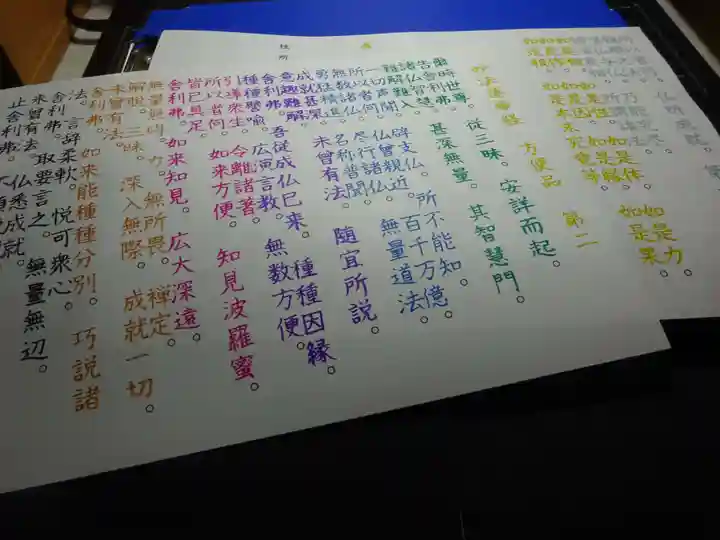 如是力。
如是果。
如是相
如是性
如是体
如是作
如是因
妙法蓮華経 方便品 第二
爾時世尊 從三昧 安詳而起。
告舍利弗 諸仏智慧 甚深無量。 其智慧門
難解難入
一切声聞 辟支仏 所不能知。
所以者何 仏曾親近 百千万億
無数諸仏 尽行諸仏 無量道法
勇猛精進 名称普聞
成就甚深 未曾有法 随宜所説。
意趣難解
舍利弗 吾從成仏已来 種種因縁。
種種譬喩 広演言教 無数方便。
引導衆生 令離諸著
所以者何 如来方便 知見波羅蜜。
皆已具足
舍利弗 如来知見 広大深遠。
無量無礙 力 無所畏 禅定。
解脱三昧 深入無際 成就一切。
未曾有法。
舍利弗 如来能種種分別 巧説諸
法。 言辞柔軟 悦可衆心。
舍利弗 取要言之。 無量無辺。
未曾有法 仏悉成就。
止舍利弗 不須